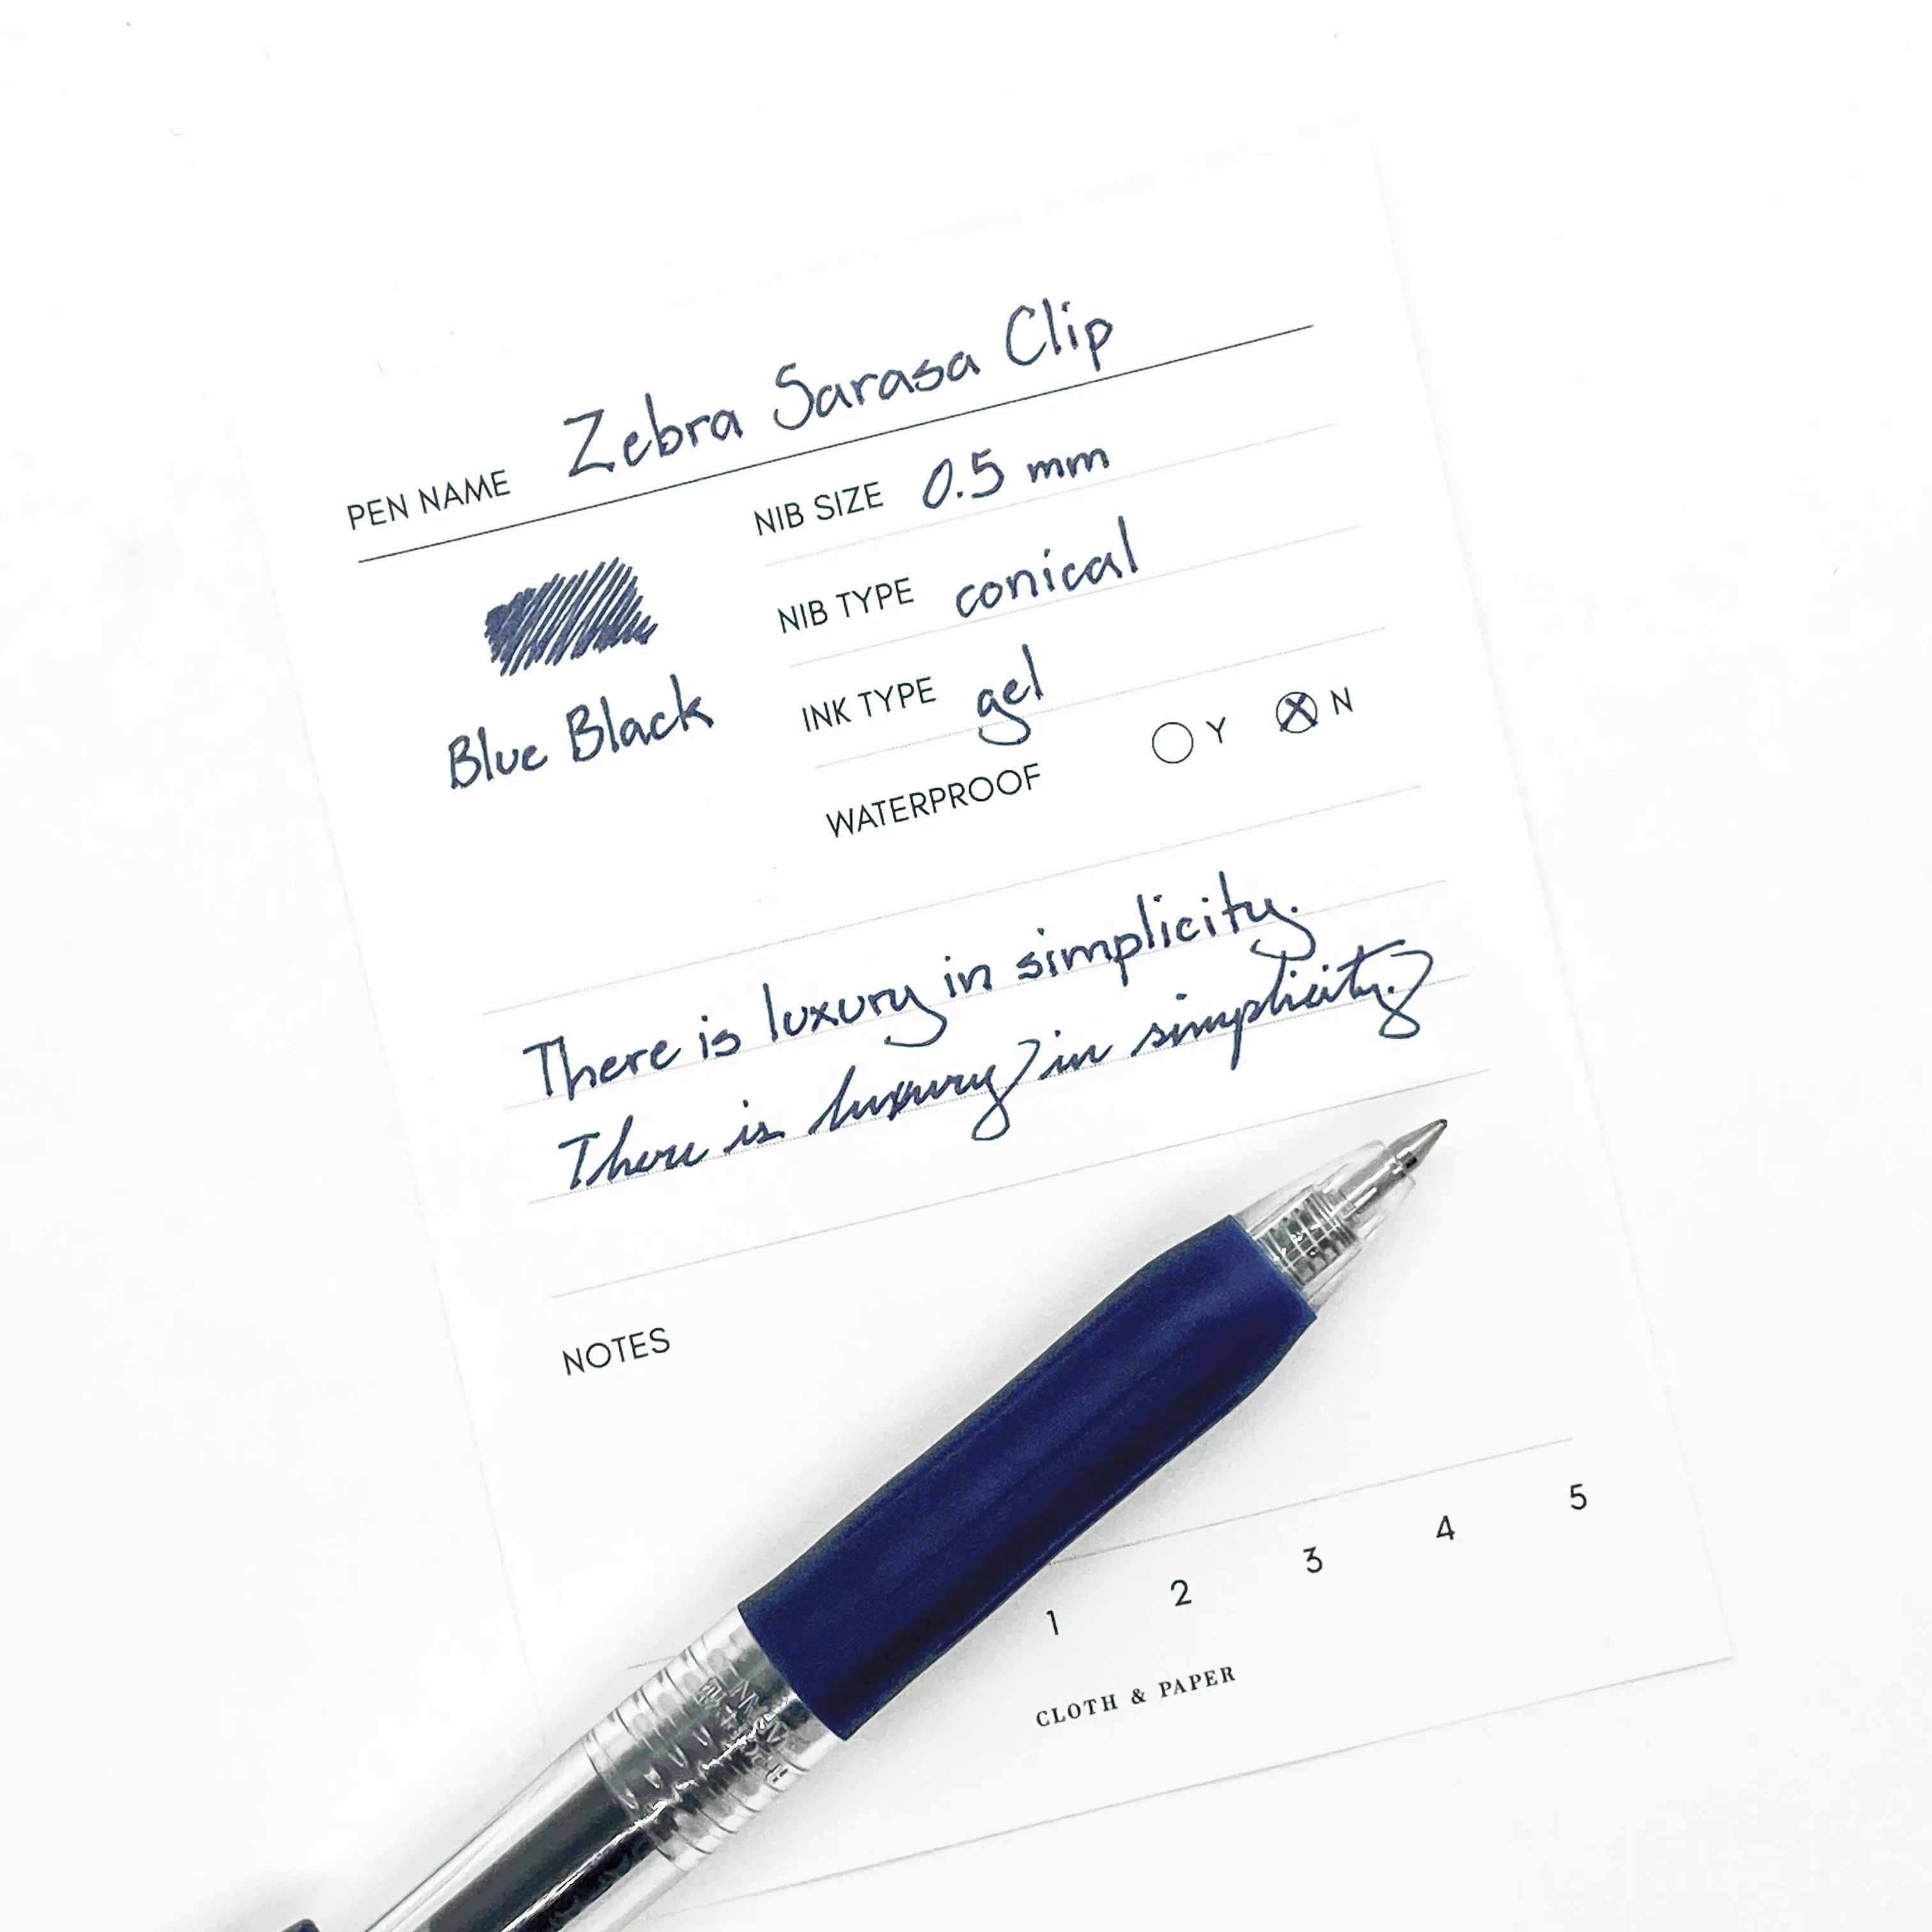 PEN NAME Zebra Sarasa Clip
NIB SIZE 0.5 mm
NIB TYPE conical
Blue Black
INK TYPE gel
WATERPROOF Y N
There is luxury in simplicity.
There is luxury in simplicity.
NOTES
1 2 3 4 5
CLOTH & PAPER